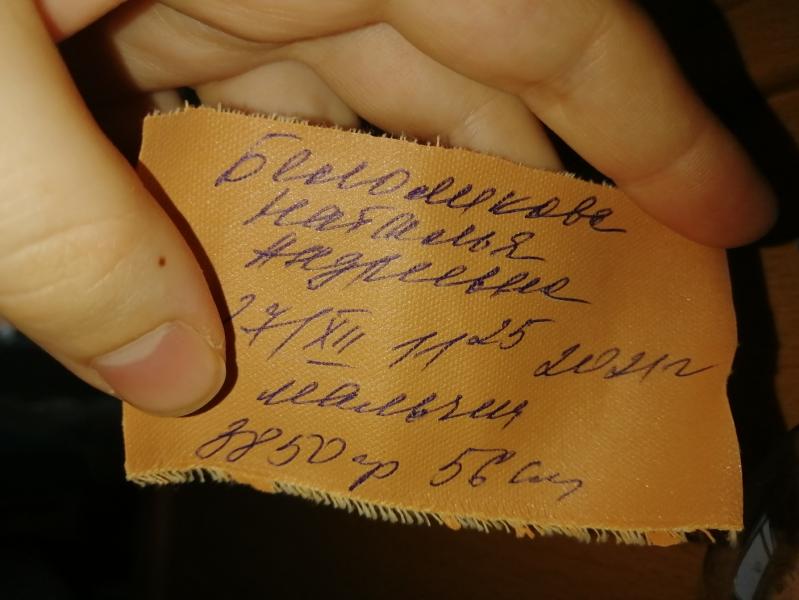 Наталья
Андреевна
27/XII 11 25 2021г
мальчик
3850 гр 56 см